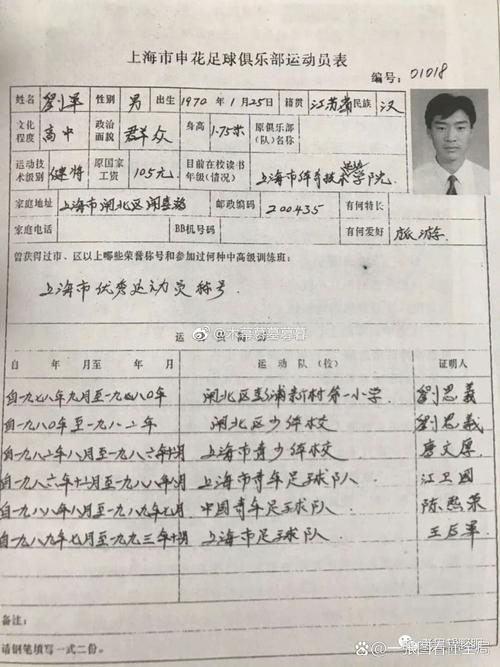 上海市申花足球俱乐部运动员表
编号：01018
姓名 劉军 性别 男 出生 1970年1月25日 籍贯 江苏省 民族 汉
文化程度 高中 政治面貌 群众 身高 1.75米 原俱乐部(队)名称
运动技术级别 健将 原国家工资 105元 目前在校读书年级(情况) 上海市体育技术学院
家庭地址 上海市闸北区 邮政编码 200435 有何特长
家庭电话 BB机号码 有何爱好 旅游
曾获得过市、区以上哪些荣誉称号和参加过何种中高级训练班：
上海市优秀运动员称号
运
@木幂暮暮暮暮
自 年 月至 年 月 运动队(校) 证明人
自一九七八年九月至一九八〇年 闸北区彭浦新村第一小学 劉思義
自一九八〇年至一九八二年 闸北区少体校 劉思義
自一九八二年八月至一九八六年十月 上海市青少体校 唐文厚
自一九八六年十月至一九八八年八月 上海市青年足球队 江卫国
自一九八八年八月至一九八九年七月 中国青年足球队 陈熙荣
自一九八九年七月至一九九三年十月 上海市足球队 王后军
备注：
请钢笔填写一式二份。